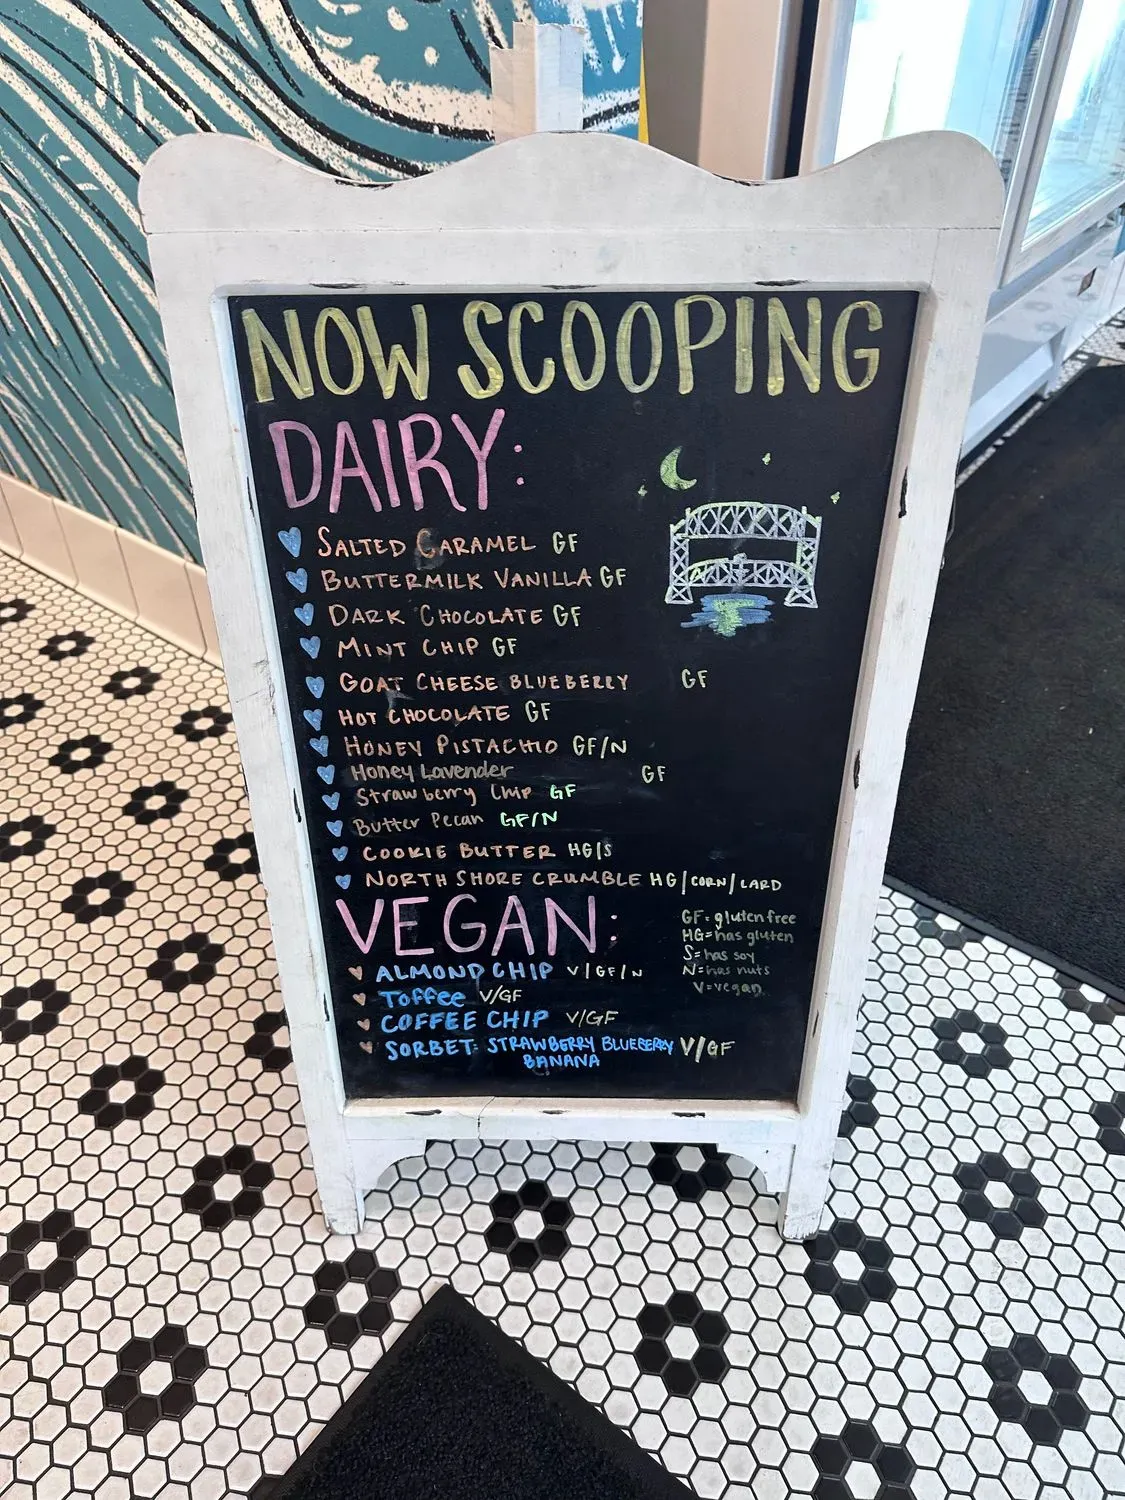 NOW SCOOPING
DAIRY:
SALTED CARAMEL GF
BUTTERMILK VANILLA GF
DARK CHOCOLATE GF
MINT CHIP GF
GOAT CHEESE BLUEBERRY GF
HOT CHOCOLATE GF
HONEY PISTACHIO GF/N
Honey Lavender GF
Strawberry Chip GF
Butter Pecan GF/N
COOKIE BUTTER HG|S
NORTH SHORE CRUMBLE HG|CORN|LARD
VEGAN:
GF= gluten free
HG= has gluten
S= has soy
N= has nuts
V= vegan
ALMOND CHIP V|GF|N
Toffee V/GF
COFFEE CHIP V/GF
SORBET: STRAWBERRY BLUEBERRY V/GF
BANANA